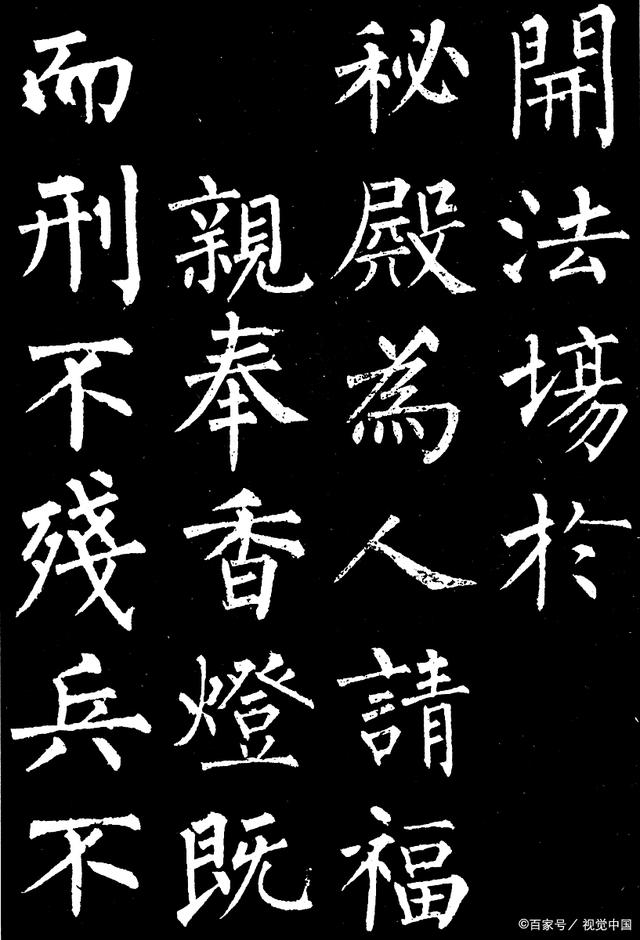 開法場於
秘殿為人請福
親奉香燈既
而刑不殘兵不
©百家号／视觉中国